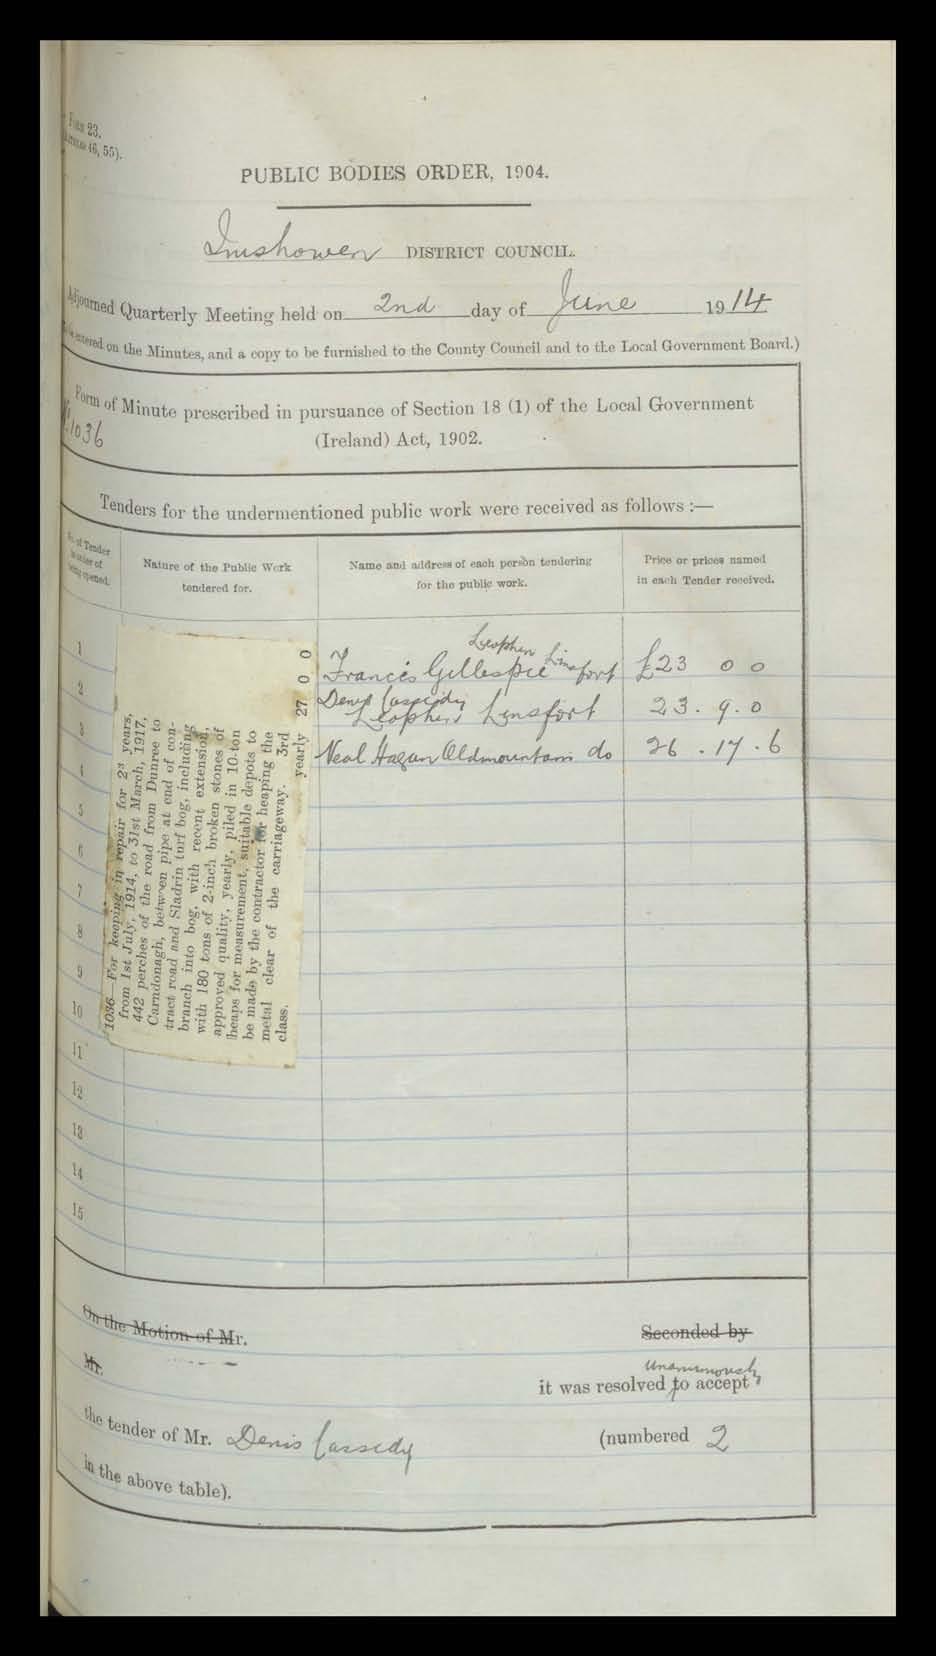 Form 23.
(Articles 46, 55).
PUBLIC BODIES ORDER, 1904.
Inishowen DISTRICT COUNCIL.
Adjourned Quarterly Meeting held on 2nd day of June 1914
(To be entered on the Minutes, and a copy to be furnished to the County Council and to the Local Government Board.)
Form of Minute prescribed in pursuance of Section 18 (1) of the Local Government
(Ireland) Act, 1902.
1036
Tenders for the undermentioned public work were received as follows :—
No. of Tender in order of being opened.
Nature of the Public Work tendered for.
Name and address of each person tendering for the public work.
Price or prices named in each Tender received.
1036—For keeping in repair for 2¾ years,
from 1st July, 1914, to 31st March, 1917,
442 perches of the road from Dunree to
Carndonagh, between pipe at end of con-
tract road and Sladrin turf bog, including
branch into bog, with recent extension,
with 180 tons of 2-inch broken stones of
approved quality, yearly, piled in 10-ton
heaps for measurement, suitable depots to
be made by the contractor for heaping the
metal clear of the carriageway. 3rd
class. yearly 27 0 0
1 Francis Gillespie Leophin Linsfort £23 0 0
2 Denis Cassiddy Leophin Linsfort 23.9.0
3 Neal Hagan Oldmountain do 26.17.6
4
5
6
7
8
9
10
11
12
13
14
15
On the Motion of Mr. Seconded by
Mr. it was resolved unanimously to accept
the tender of Mr. Denis Cassidy (numbered 2
in the above table).